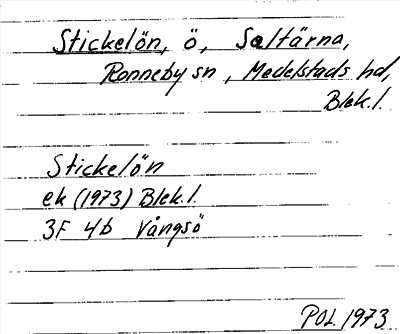 Stickelön, ö, Saltärna,
Ronneby sn, Medelstads hd,
Blek. l.
Stickelön
ek (1973) Blek. l.
3F 4b Vångsö
POL 1973